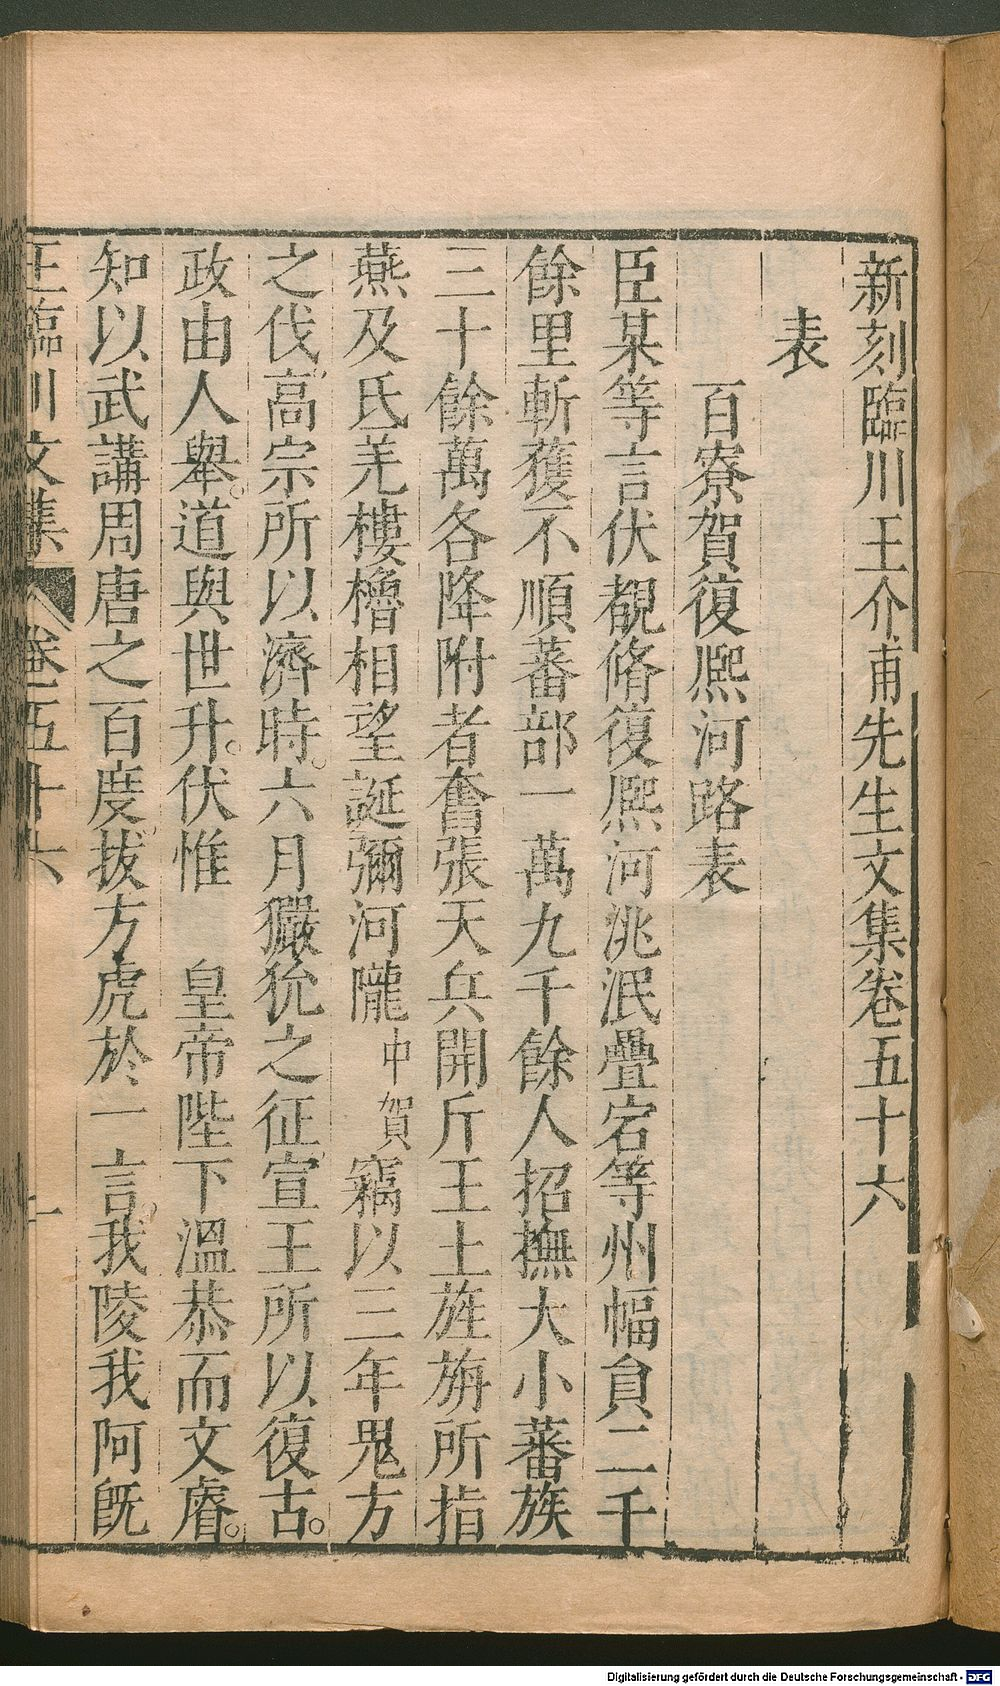 新刻臨川王介甫先生文集卷五十六
表
百寮賀復熈河路表
臣某等言伏覩脩復熈河洮泯疊宕等州幅員二千
餘里斬獲不順蕃部一萬九千餘人招撫大小蕃族
三十餘萬各降附者奮張天兵開斥王土旌旃所指
燕及氐羌樓櫓相望誕彌河隴中賀竊以三年鬼方
之伐高宗所以濟時。六月玁狁之征宣王所以復古。
政由人舉。道與世升。伏惟 皇帝陛下溫恭而文睿。
知以武講周唐之百度拔方虎於一言。我陵我阿旣
王臨川文集 卷五十六 一
Digitalisierung gefördert durch die Deutsche Forschungsgemeinschaft - DFG